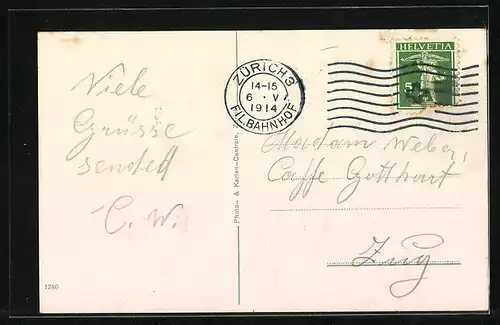 Viele
Grüsse
sendet
C. W.
ZÜRICH 3
14-15
6 · V
1914
FILBAHNHOF
HELVETIA
5
Madam Weber,
Caffe Gotthart
Zug
Photo- & Karten-Centrale,
1280